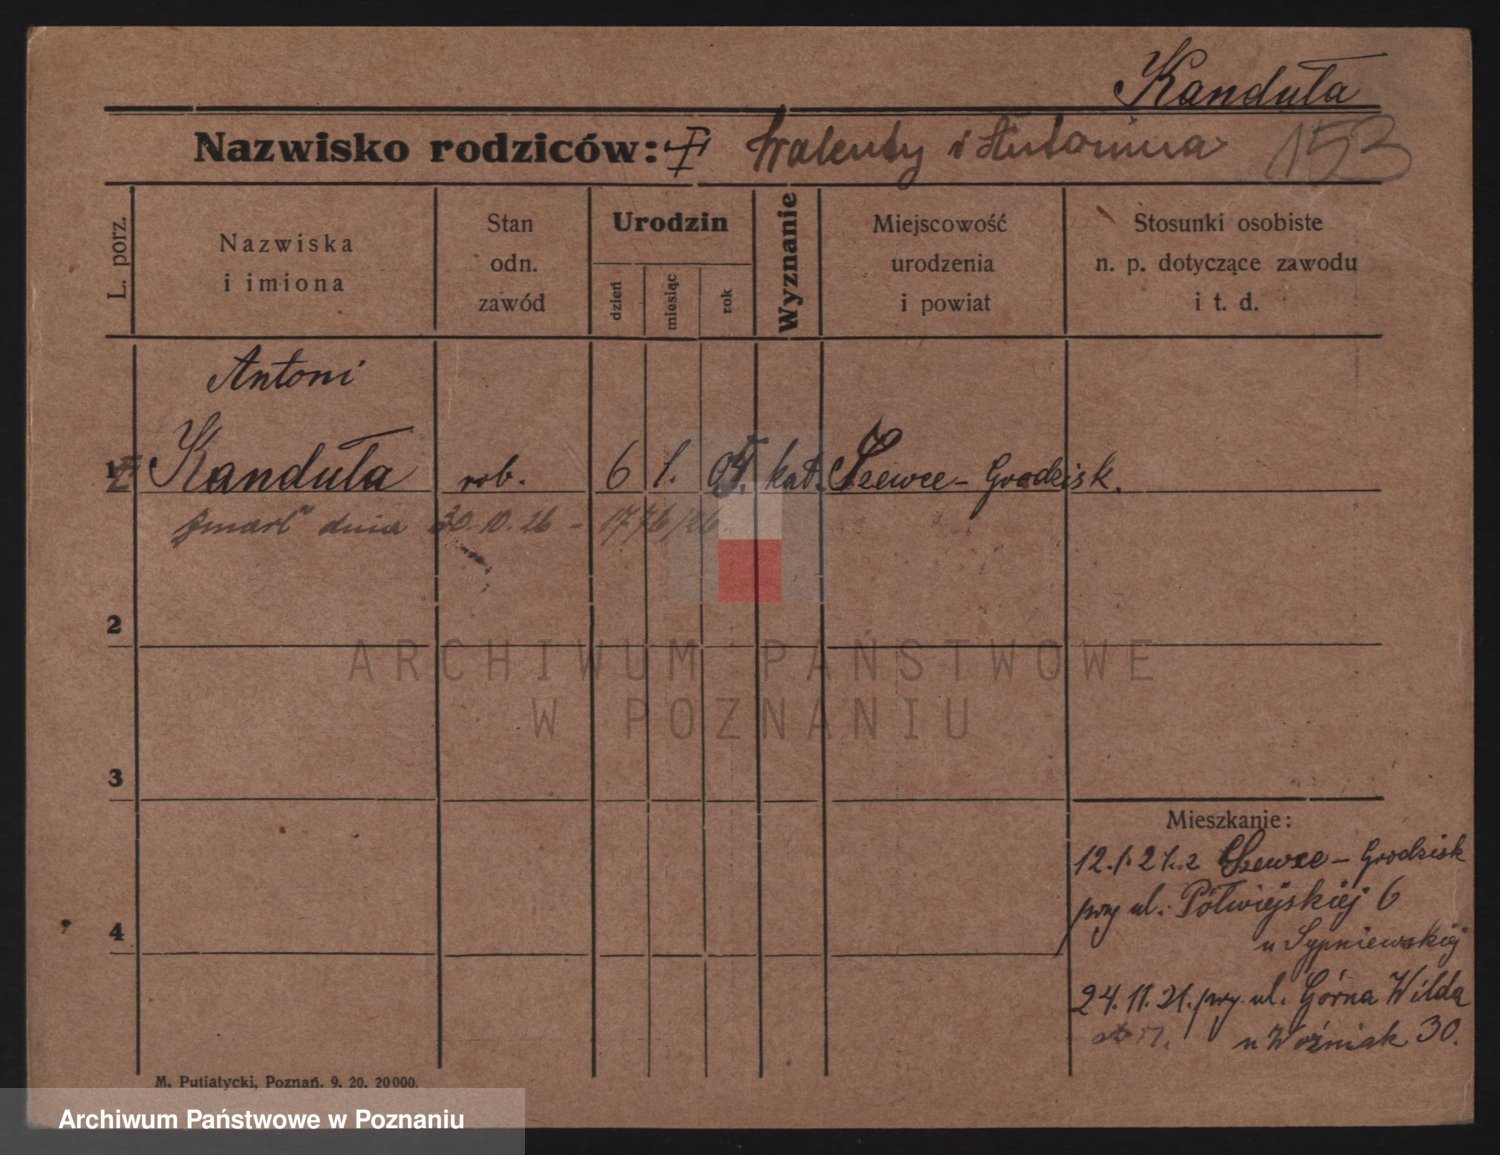 Kanduła
Nazwisko rodziców: Walenty i Antonina 153
L. porz.
Nazwiska
i imiona
Stan
odn.
zawód
Urodzin
dzień
miesiąc
rok
Wyznanie
Miejscowość
urodzenia
i powiat
Stosunki osobiste
n. p. dotyczące zawodu
i t. d.
Antoni
1 Kanduła rob. 6 1. kat. Szewce – Grodzisk.
zmarł dnia 30. 10. 26 – 1776/26
2
3
4
ARCHIWUM PAŃSTWOWE
W POZNANIU
Mieszkanie:
12.1.21. z Szewce – Grodzisk
przy ul. Półwiejskiej 6
u Sypniewskiej
24.11.21. przy ul. Górna Wilda
u Woźniak 30.
M. Putiatycki, Poznań. 9. 20. 20000.
Archiwum Państwowe w Poznaniu